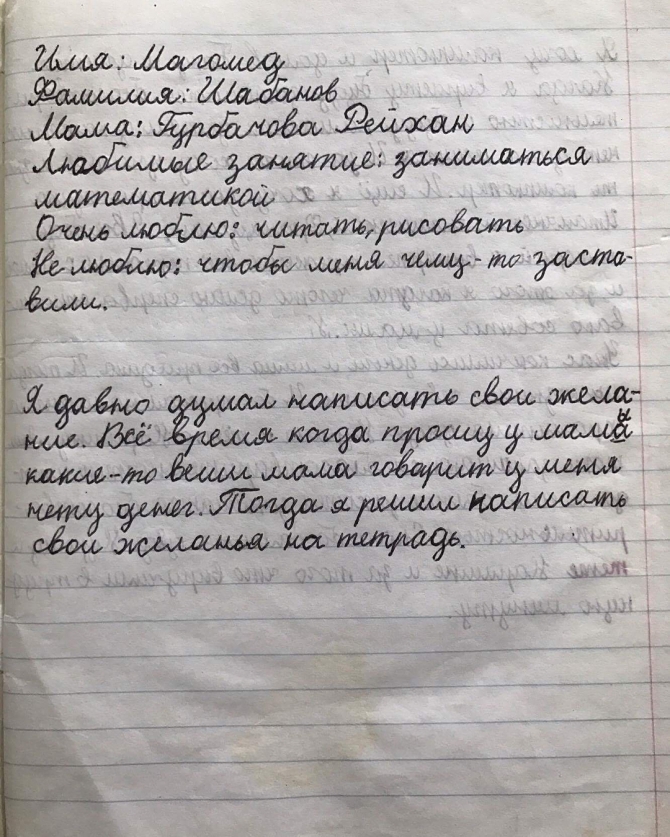 Имя: Магомед
Фамилия: Шабанов
Мама: Гурбачова Рейхан
Любимые занятие: заниматься
математикой
Очень люблю: читать, рисовать
Не люблю: чтобы меня чему-то заста-
вили.
Я давно думал написать свои жела-
ние. Всё время когда прошу у мамы
какие-то вещи мама говорит у меня
нету денег. Тогда я решил написать
свои желанья на тетрадь.